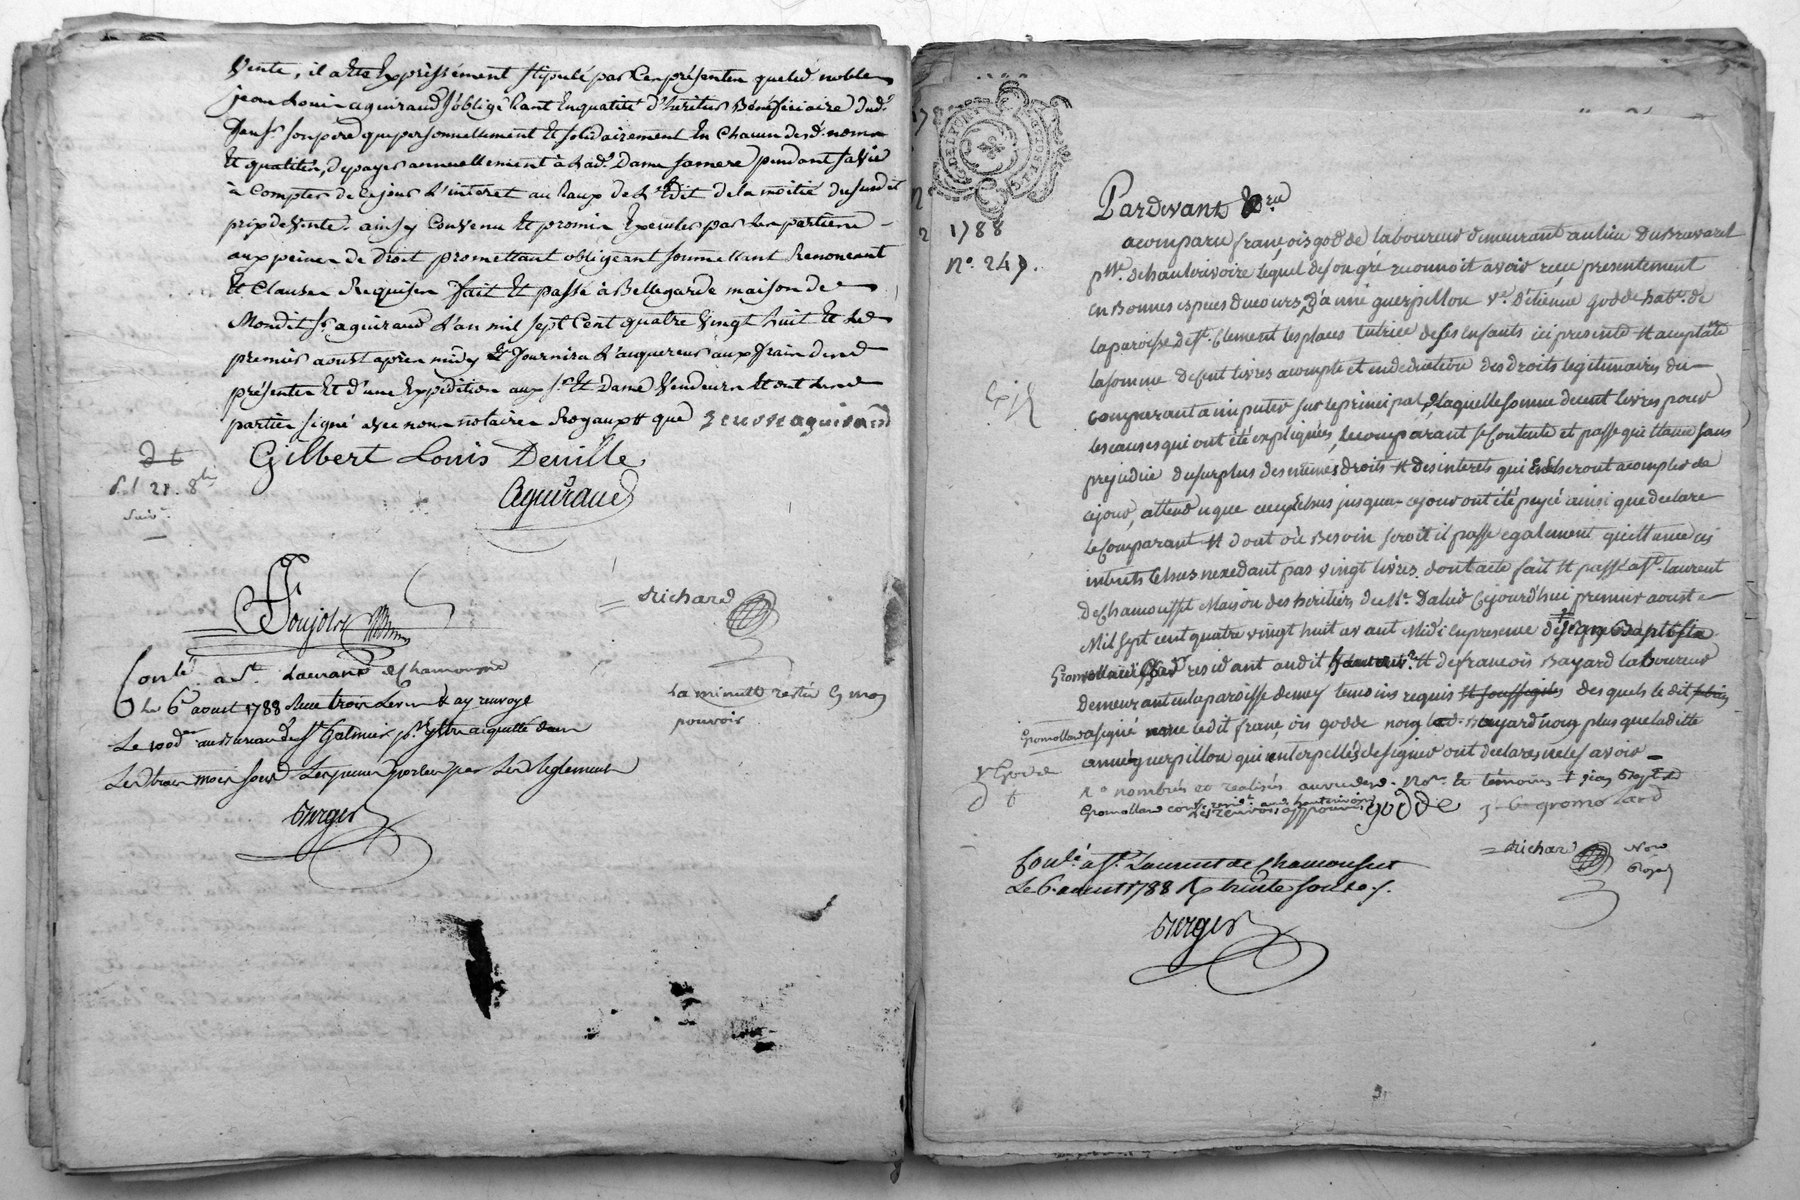 vente, il a ete expressément stipulé par ces présentes que led. noble
jean Louis aguiraud s'oblige tant en qualité d'heritier Bénéficiaire dud.
son pere que personnellement et solidairement en chacun desd. noms
et qualités, de payer annuellement à lad. Dame sa mere pendant sa vie
à Compter de ce jour l'interet au taux de l'Edit de la moitié du susdit
prix de vente. ainsy convenu et promis executer par les parties
aux peines de Droit promettant obligeant soumettant Renonçant
et Clauses Requises fait et passé à Bellegarde maison de
Mondit Sr aguiraud l'an mil sept Cent quatre vingt huit et le
premier aoust après midy et fournira l'acquereur aux frais des
présentes et d'une Expédition aux Sr et Dame vendeurs et ont les
parties signé avec nous notaires Royaux et que
Gilbert Louis Denille
Aguiraud
d t
d. l 21. 8
Poujol
richard
la minutte restée En mon
pouvoir
Conlé a St. Laurand de Chamousset
Le 6 aoust 1788 Reçu trois Livres et ay renvoyé
Le 100d. au Bureau de St Galmier pr. Estre acquitté dans
Les trois mois sous Les peines portées par Les Reglements
Berger
1788
No. 247.
Pardevant
a comparu françois godde laboureur demeurant au lieu du Bravaret
psse. de hauterivoire lequel de son gré reconnoit avoir reçu presentement
en Bonnes espues du cours, d'anne guerpillon ve. d'étienne godde habte. de
la paroisse de St. Clement les places tutrice de ses enfants ici presente et aceptante
la somme de cent livres acompte et en deduction des droits legitimaires du
comparant a imputer sur le principal, de laquelle somme de cent livres pour
les causes qui ont été expliquées, le comparant se contente et passe quittance sans
prejudice du surplus des mêmes droits et des interets qui echeront a compter de
ce jour, attendu que ceux echus jusqua ce jour ont été payé ainsi que declare
le comparant et dont où Besoin seroit il passe egalement quittance ces
interets echus nexedant pas vingt livres. dont acte fait et passé a St. laurent
de Chamousset Maison des heritiers du Mr. Dalud ce jourd'hui premier aoust
Mil sept cent quatre vingt huit avant Midi en presence de jean Baptiste
Gromollard resident audit et de francois Bayard laboureur
demeurant en la paroisse de meys temoins requis et soussignés desquels le dit
Gromollard a signé avec le dit françois godde non led. Bayard non plus que la ditte
anne guerpillon qui enterpellés de signer ont declaré ne le savoir
nombrés et realisés au vu desd. Nore. et témoins † jean Baptiste
Gromollard
godde
j. B gromolard
richard
Nore
Royal
Conlé a St. Laurent de Chamousset
Le 6 aoust 1788 R. trente sous
Berger